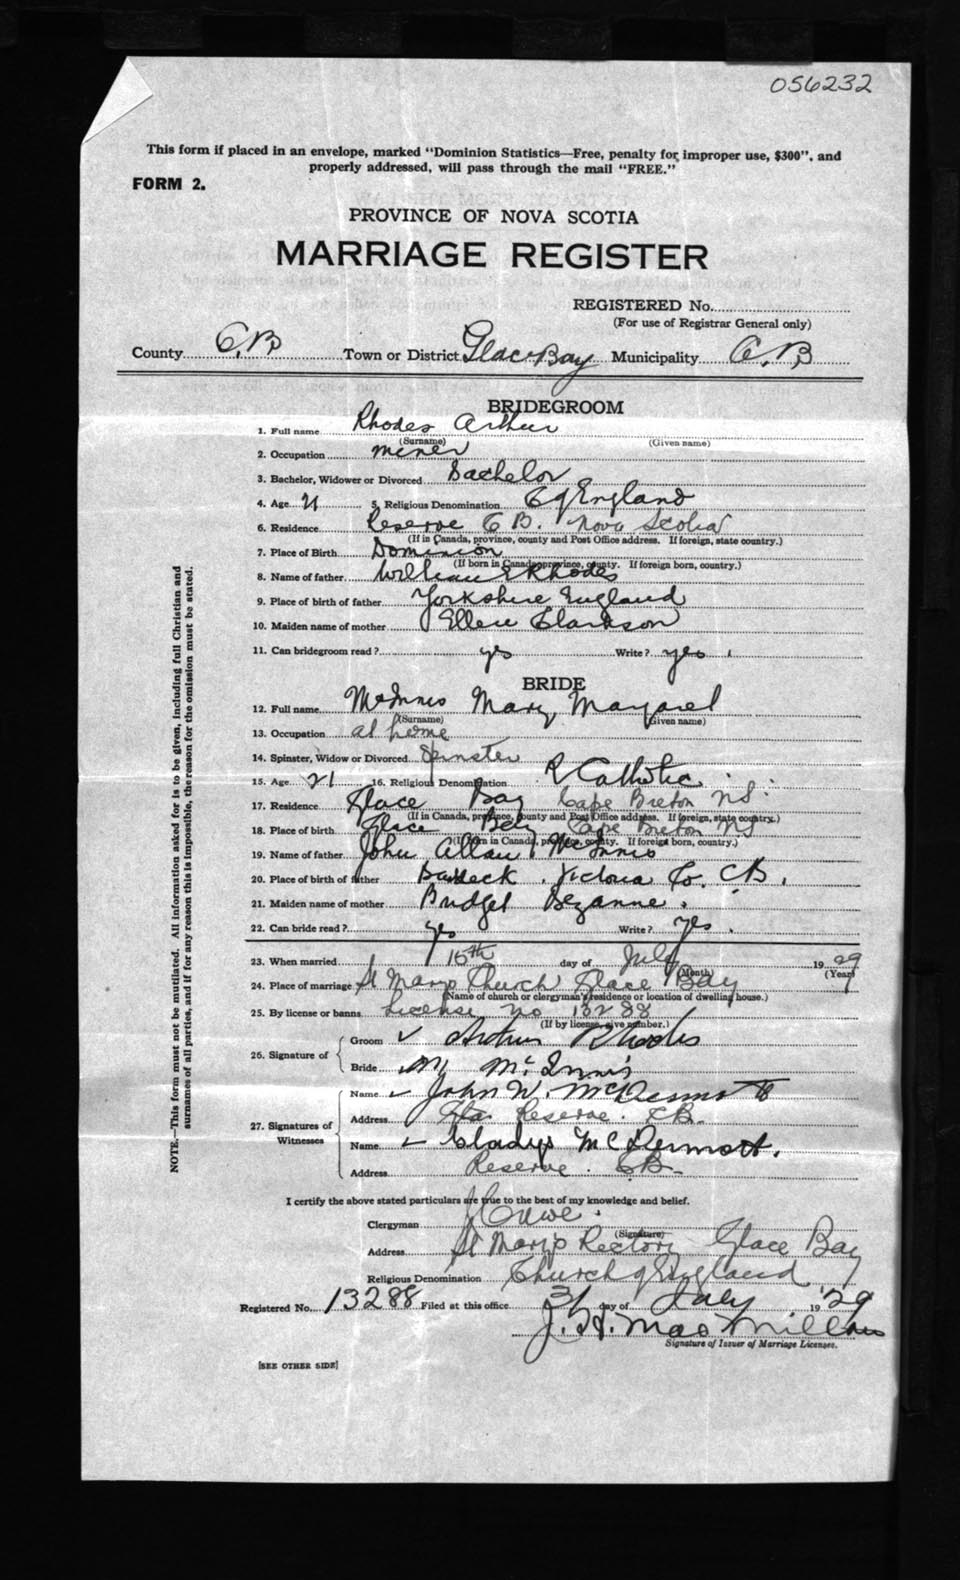 056232
This form if placed in an envelope, marked "Dominion Statistics—Free, penalty for improper use, $300", and
properly addressed, will pass through the mail "FREE."
FORM 2.
PROVINCE OF NOVA SCOTIA
MARRIAGE REGISTER
REGISTERED No.
(For use of Registrar General only)
County C.B Town or District Glace Bay Municipality C.B
BRIDEGROOM
1. Full name Rhodes Arthur
(Surname) (Given name)
2. Occupation miner
3. Bachelor, Widower or Divorced Bachelor
4. Age 21 5. Religious Denomination C of England
6. Residence Reserve C B. Nova Scotia
(If in Canada, province, county and Post Office address. If foreign, state country.)
7. Place of Birth Dominion
(If born in Canada, province, county. If foreign born, country.)
8. Name of father William E Rhodes
9. Place of birth of father Yorkshire England
10. Maiden name of mother Ellen Clarkson
11. Can bridegroom read? yes Write? yes.
BRIDE
12. Full name McInnis Mary Margaret
(Surname) (Given name)
13. Occupation at home
14. Spinster, Widow or Divorced Spinster
15. Age 21 16. Religious Denomination R Catholic
17. Residence Glace Bay Cape Breton N.S.
(If in Canada, province, county and Post Office address. If foreign, state country.)
18. Place of birth Glace Bay Cape Breton NS
(If born in Canada, province, county. If foreign born, country.)
19. Name of father John Allan McInnis
20. Place of birth of father Baddeck. Victoria Co. C.B.
21. Maiden name of mother Bridget Bezanne.
22. Can bride read? yes Write? yes.
23. When married 15th day of July 1929
(Month) (Year)
24. Place of marriage St Marys Church Glace Bay
(Name of church or clergyman's residence or location of dwelling house.)
25. By license or banns License no 13288
(If by license, give number.)
26. Signature of
Groom Arthur Rhodes
Bride M McInnis
27. Signatures of Witnesses
Name John W. McDermott
Address Reserve. C.B.
Name Gladys McDermott.
Address Reserve. C.B.
I certify the above stated particulars are true to the best of my knowledge and belief.
Clergyman
(Signature)
Address St Mary's Rectory Glace Bay
Religious Denomination Church of England
Registered No. 13288 Filed at this office 31 day of July 1929
J. H. MacMillan
Signature of Issuer of Marriage Licenses.
[SEE OTHER SIDE]
NOTE.—This form must not be mutilated. All information asked for is to be given, including full Christian and
surnames of all parties, and if for any reason this is impossible, the reason for the omission must be stated.